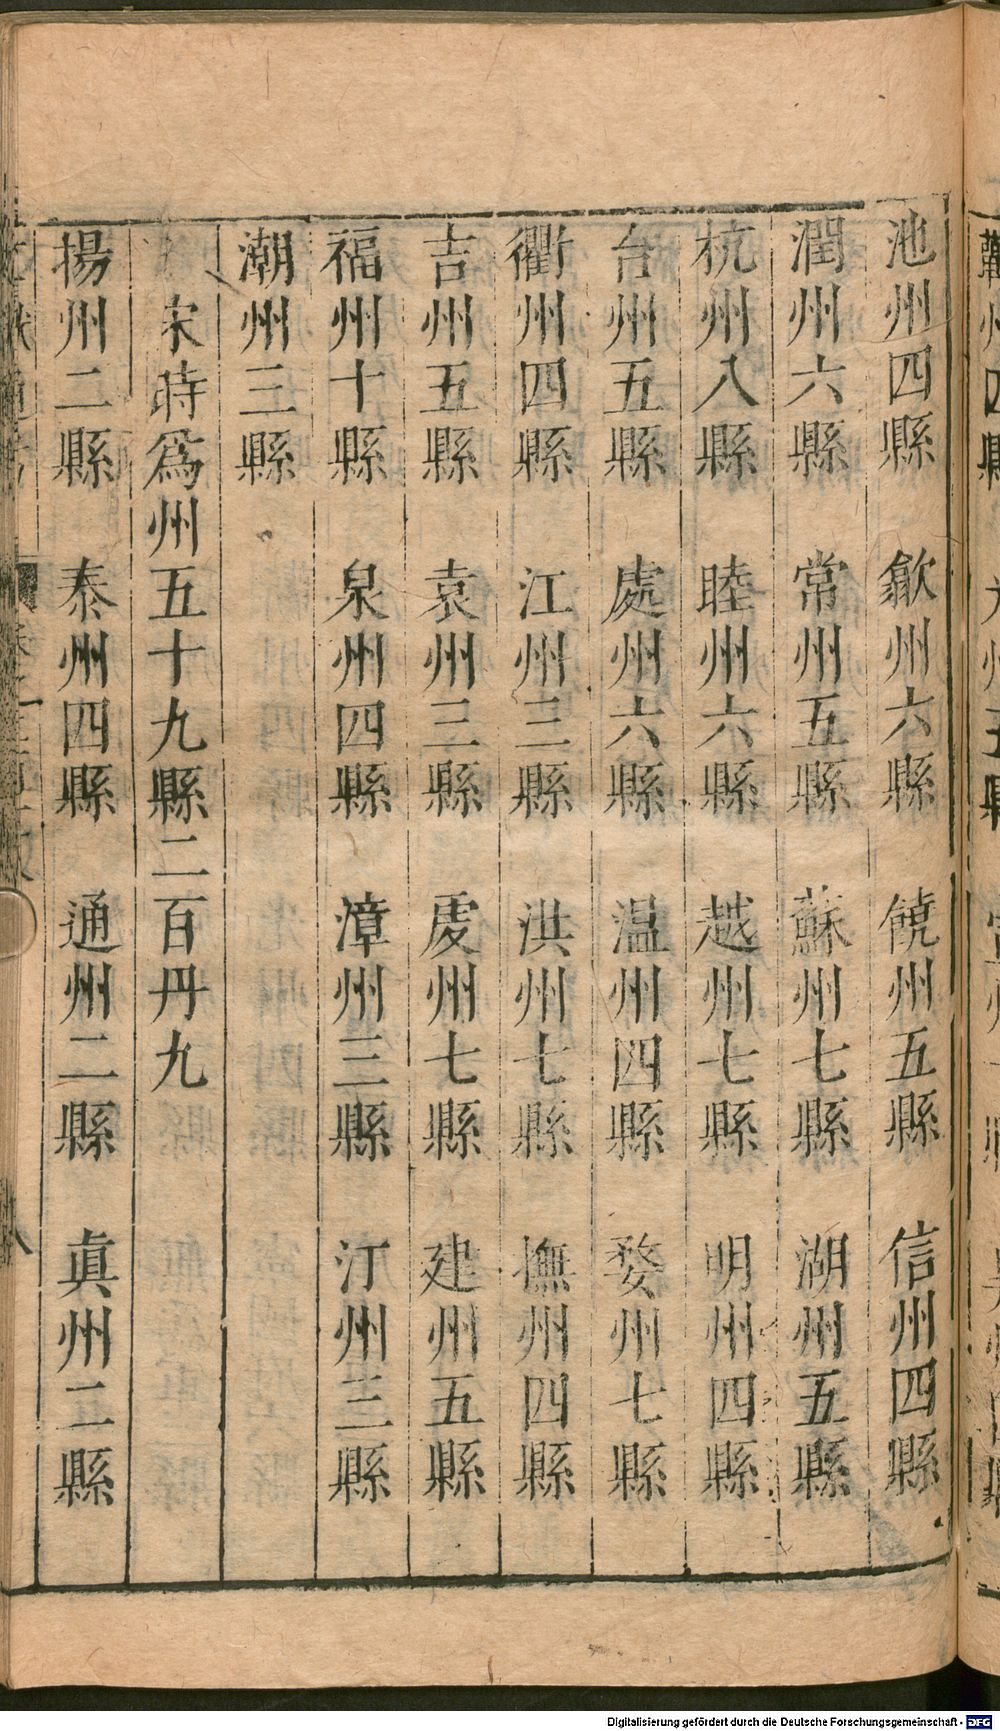 池州四縣　歙州六縣　饒州五縣　信州四縣
潤州六縣　常州五縣　蘇州七縣　湖州五縣
杭州八縣　睦州六縣　越州七縣　明州四縣
台州五縣　處州六縣　溫州四縣　婺州七縣
衢州四縣　江州三縣　洪州七縣　撫州四縣
吉州五縣　袁州三縣　虔州七縣　建州五縣
福州十縣　泉州四縣　漳州三縣　汀州三縣
潮州三縣
宋時爲州五十九縣二百丹九
揚州二縣　泰州四縣　通州二縣　眞州二縣
Digitalisierung gefördert durch die Deutsche Forschungsgemeinschaft - DFG